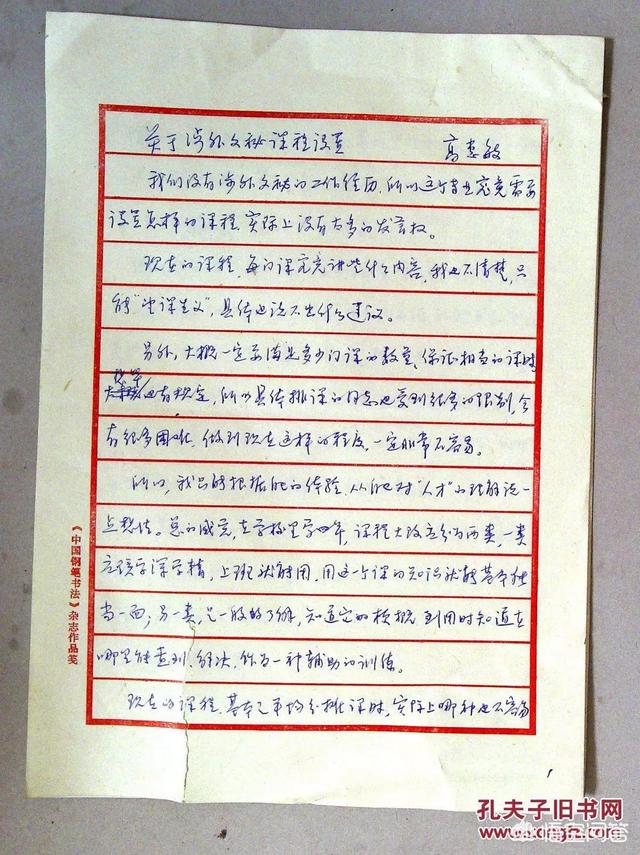 关于涉外文秘课程设置 高惠敏
我们没有涉外文秘的工作经历,所以这个专业究竟需要
设置怎样的课程,实际上没有太多的发言权。
现在的课程,每门课究竟讲些什么内容,我也不清楚,只
能“望课生义”,具体也说不出什么建议。
另外,大概一定要满足多少门课的数量,保证相当的课时
也有规定,所以具体排课的同志也受到很多的限制,会
有很多困难,做到现在这样的程度,一定非常不容易。
所以,我只能根据我的体验,从我对“人才”的理解说一
点想法。总的感觉,在学校里学四年,课程大致应分为两类,一类
应该学深学精,上班就能用,用这一个课的知识就能基本独
当一面;另一类,是一般的了解,知道它的梗概,到用时知道在
哪里能查到、解决,作为一种辅助的训练。
现在的课程,基本是平均分摊课时,实际上哪种也不容易
《中国钢笔书法》杂志作品笺
1
孔夫子旧书网
悟空问答